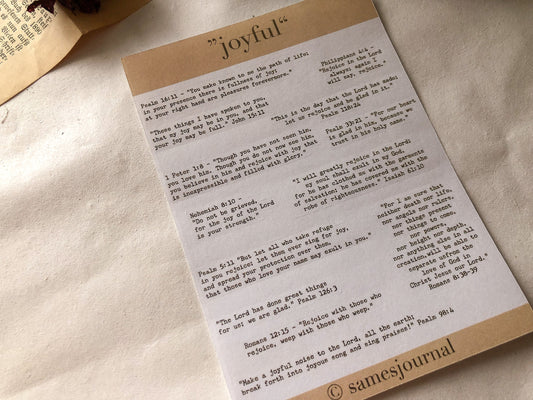 „joyful“
Psalm 16:11 - "You make known to me the path of life;
in your presence there is fullness of joy;
at your right hand are pleasures forevermore."
Philippians 4:4 -
"Rejoice in the Lord
always; again I
will say, rejoice."
"These things I have spoken to you,
that my joy may be in you, and that
your joy may be full." John 15:11
"This is the day that the Lord has made;
let us rejoice and be glad in it."
Psalm 118:24
1 Peter 1:8 - "Though you have not seen him,
you love him. Though you do not now see him,
you believe in him and rejoice with joy that
is inexpressible and filled with glory."
Psalm 33:21 - "For our heart
is glad in him, because we
trust in his holy name."
"I will greatly rejoice in the Lord;
my soul shall exult in my God,
for he has clothed me with the garments
of salvation; he has covered me with the
robe of righteousness." Isaiah 61:10
Nehemiah 8:10 -
"Do not be grieved,
for the joy of the Lord
is your strength."
"For I am sure that
neither death nor life,
nor angels nor rulers,
nor things present
nor things to come,
nor powers,
nor height nor depth,
nor anything else in all
creation, will be able to
separate us from the
love of God in
Christ Jesus our Lord."
Romans 8:38-39
Psalm 5:11 "But let all who take refuge
in you rejoice; let them ever sing for joy,
and spread your protection over them,
that those who love your name may exult in you."
"The Lord has done great things
for us; we are glad." Psalm 126:3
Romans 12:15 - "Rejoice with those who
rejoice, weep with those who weep."
"Make a joyful noise to the Lord, all the earth;
break forth into joyous song and sing praises!" Psalm 98:4
© samesjournal